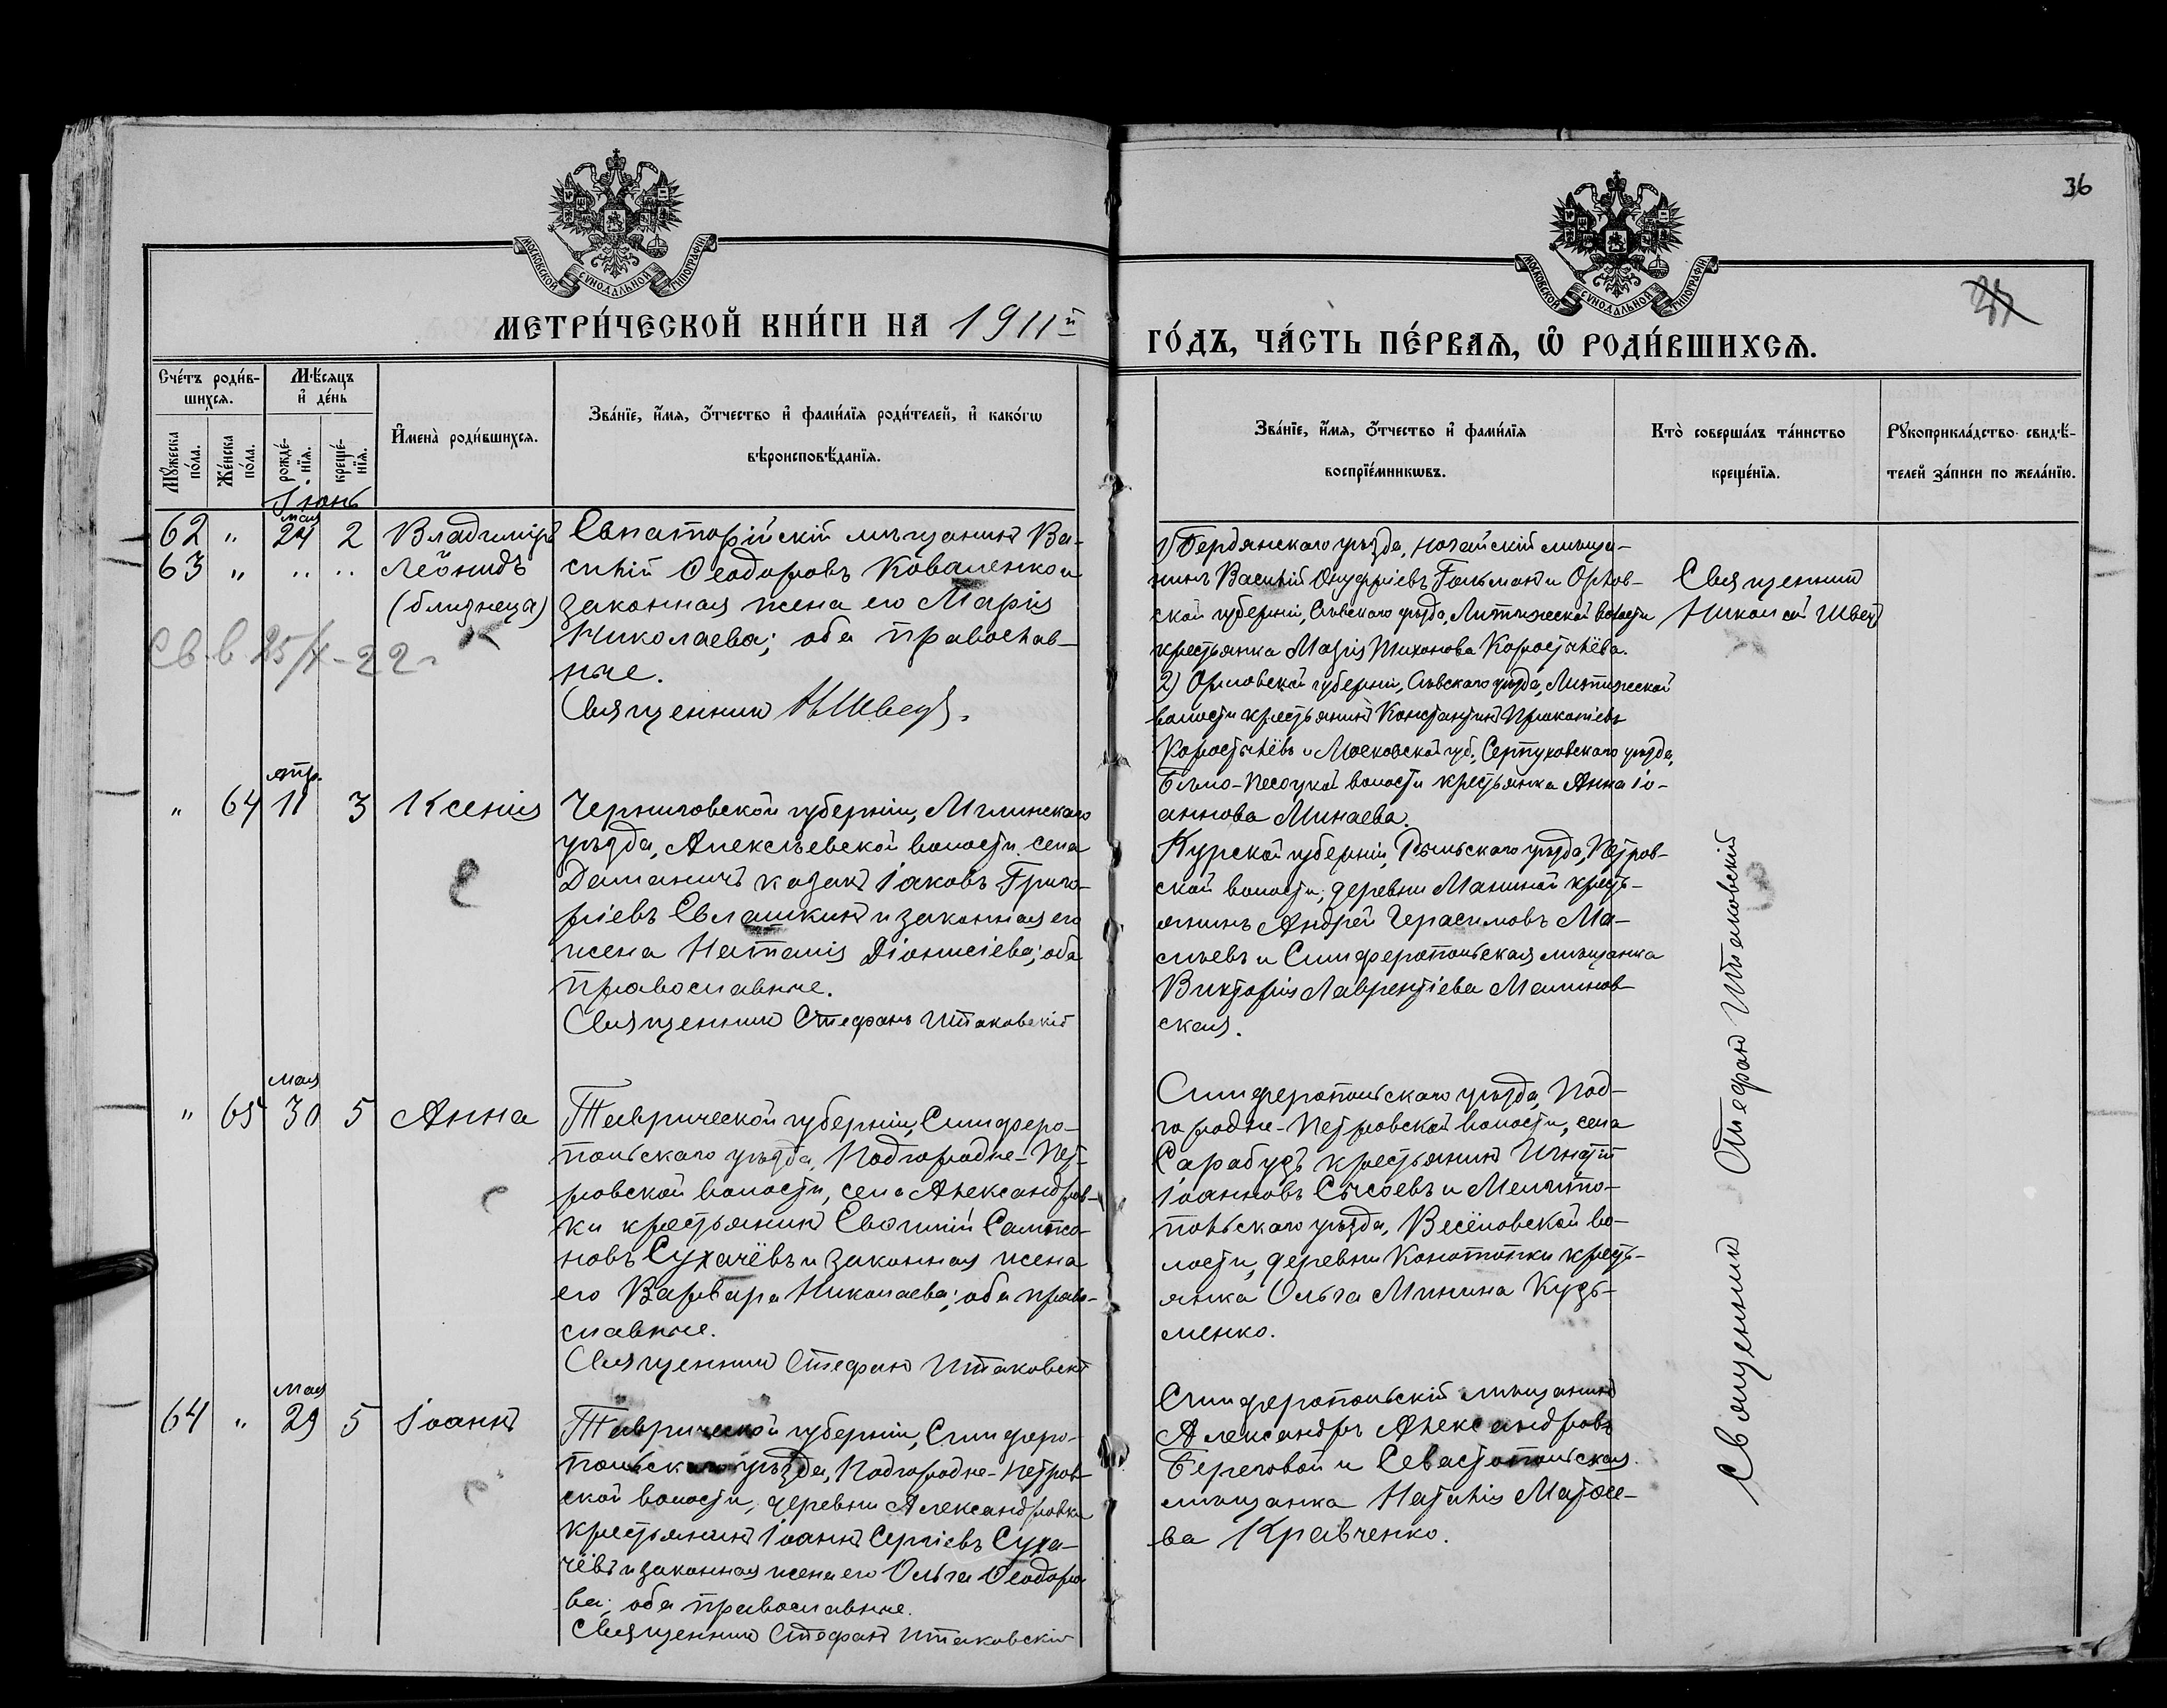 36
МОСКОВСКОЙ СѴНОДАЛЬНОЙ ТИПОГРАФІИ
МОСКОВСКОЙ СѴНОДАЛЬНОЙ ТИПОГРАФІИ
МЕТРИ́ЧЕСКОЙ КНИ́ГИ НА 1911й
ГО́ДЪ, ЧА́СТЬ ПЕ́РВАѦ, Ѡ҆ РОДИ́ВШИХСѦ.
Сче́тъ роди́в-
шихсѧ.
Мѣ́сѧцъ
и҆ де́нь
Мꙋ́жеска
по́ла.
Же́нска
по́ла.
рожде́-
нїѧ.
креще́-
нїѧ.
И҆мена̀ роди́вшихсѧ.
Зва́нїе, и҆́мѧ, ѻ҆́тчество и҆ фами́лїѧ роди́телей, и҆ како́гѡ
вѣроисповѣ́данїѧ.
Зва́нїе, и҆́мѧ, ѻ҆́тчество и҆ фами́лїѧ
воспрїе́мникѡвъ.
Кто̀ соверша́лъ та́инство
креще́нїѧ.
Рꙋкоприкла́дство свидѣ́-
телей за́писи по жела́нїю.
Іюнь
мая
62 " 24 2 Владиміръ
63 " .. .. Леонидъ
(близнеца)
Св. в 25/X-22г
Евпаторійскій мѣщанинъ Ва-
силій Ѳеодоровъ Коваленко и
законная жена его Марія
Николаева; оба православ-
ные.
Священникъ Н. Швецъ.
1) Бердянскаго уѣзда, ногайскій мѣща-
нинъ Василій Онуфріевъ Гольманъ и Орлов-
ской губерніи, Сѣвскаго уѣзда, Литижской волости
крестьянка Марія Тихонова Коростылёва.
2) Орловской губерніи, Сѣвскаго уѣзда, Литижской
волости крестьянинъ Константинъ Прокопіевъ
Коростылёвъ и Московской губ., Серпуховского уѣзда,
Бѣло-Песоцкой волости крестьянка Анна Іо-
аннова Минаева.
Священникъ
Николай Швецъ
апр.
" 64 11 3 Ксенія
Черниговской губерніи, Мглинскаго
уѣзда, Алексѣевской волости, села
Деманичъ казакъ Іаковъ Григо-
ріевъ Евлашкинъ и законная его
жена Наталія Діонисіева; оба
православные.
Священникъ Стефанъ Штаковскій
Курской губерніи, Рыльскаго уѣзда, Петров-
ской волости, деревни Маниной кресть-
янинъ Андрей Герасимовъ Ма-
слѣевъ и Симферопольская мѣщанка
Викторія Лаврентіева Малинов-
ская.
мая
" 65 30 5 Анна
Таврической губерніи, Симферо-
польскаго уѣзда, Подгородне-Пет-
ровской волости, села Александров-
ки крестьянинъ Евѳимій Сампсо-
новъ Сухачёвъ и законная жена
его Варвара Николаева; оба право-
славные.
Священникъ Стефанъ Штаковскій
Симферопольскаго уѣзда, Под-
городне-Петровской волости, села
Сарабузъ крестьянинъ Игнатій
Іоанновъ Сысоевъ и Мелито-
польскаго уѣзда, Весёловской во-
лости, деревни Конотопки кресть-
янка Ольга Минина Кузь-
менко.
мая
64 " 29 5 Іоаннъ
Таврической губерніи, Симферо-
польскаго уѣзда, Подгородне-Петров-
ской волости, деревни Александровки
крестьянинъ Іоаннъ Сергіевъ Суха-
чёвъ и законная жена его Ольга Ѳеодоро-
ва; оба православные.
Священникъ Стефанъ Штаковскій
Симферопольскій мѣщанинъ
Александръ Александровъ
Береговой и Севастопольская
мѣщанка Наталія Матѳее-
ва Кравченко.
Священникъ Стефанъ Штаковскій